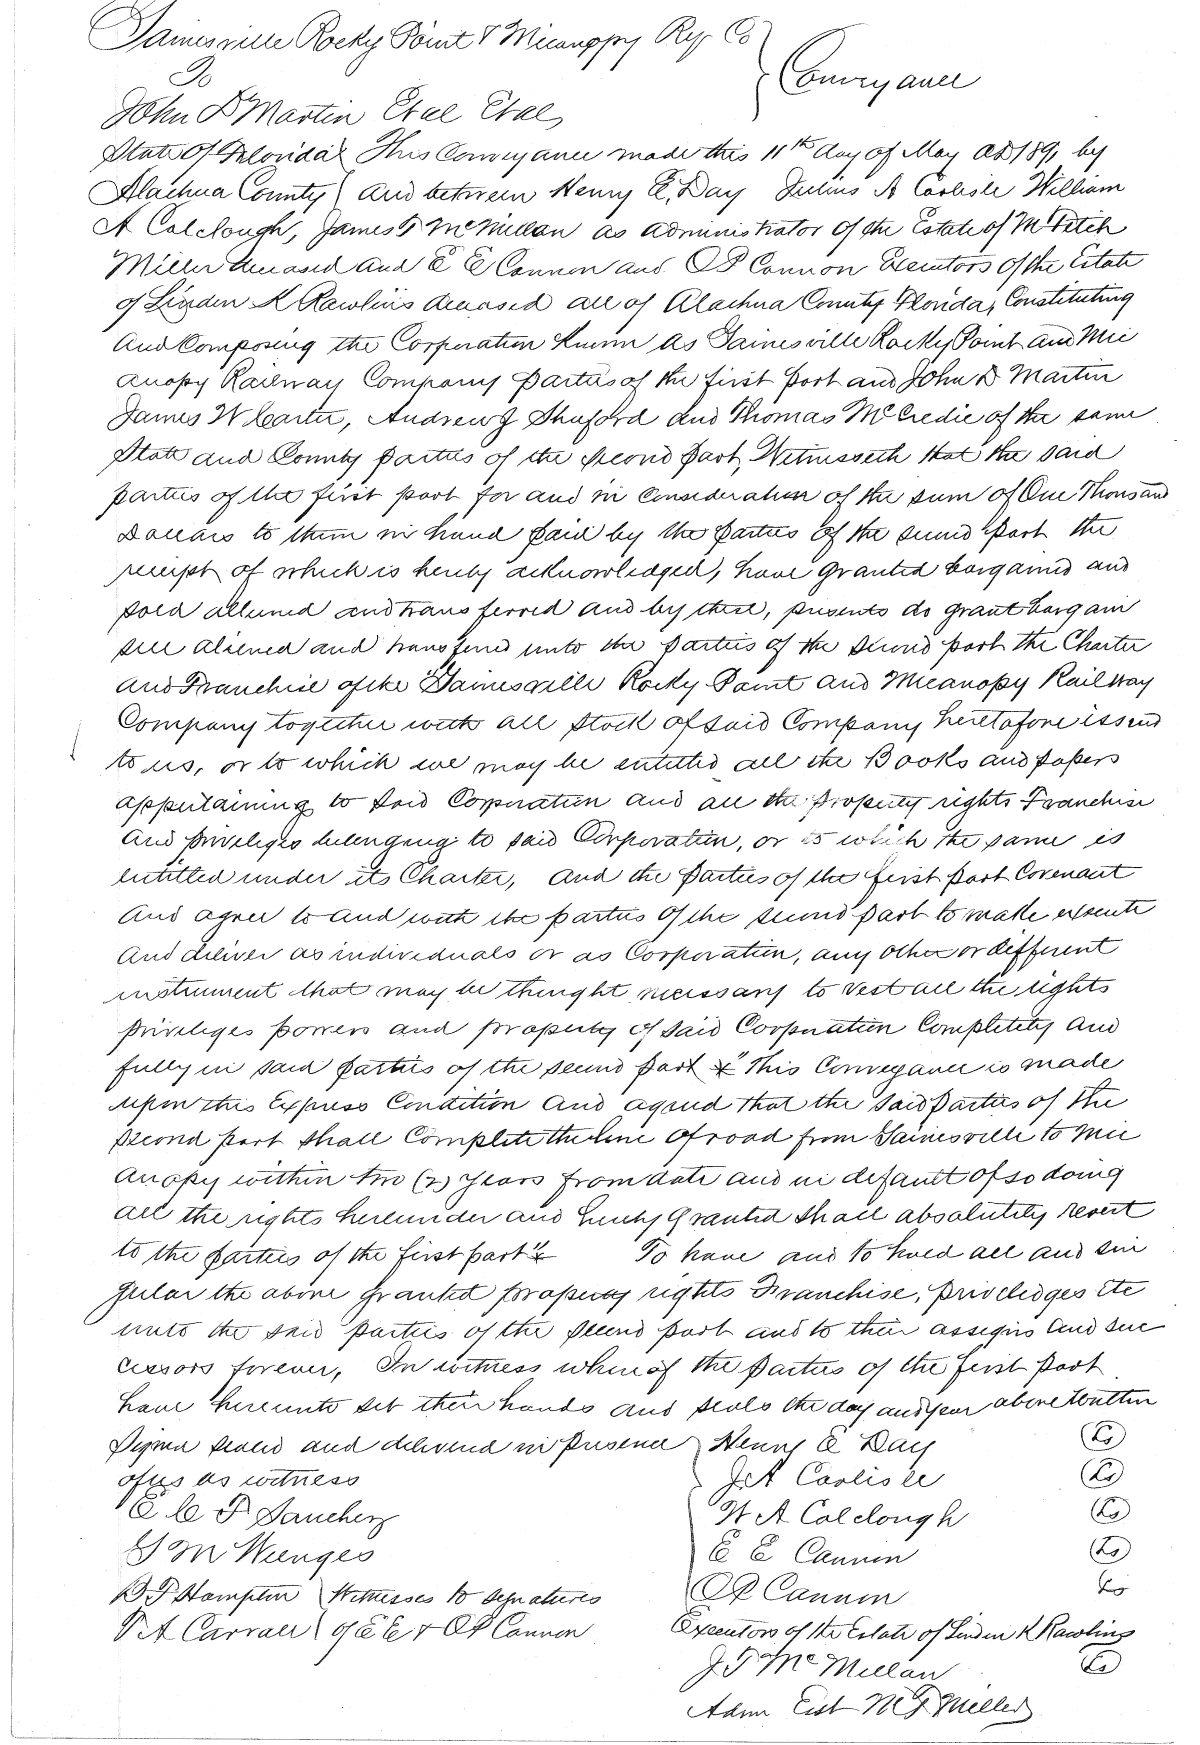 Gainesville Rocky Point & Micanoppy Ry Co
To
Conveyance
John D Martin Et al Et al,
State Of Florida } This Conveyance made this 11th day of May AD 189, by
Alachua County } and between Henry E. Day Julius A Carlisle William
A Colclough, James T McMillan as administrator of the Estate of M Fitch
Miller deceased and E E Cannon and O P Cannon Executors of the Estate
of Linden K Rawlins deceased all of Alachua County Florida, Constituting
And Composing the Corporation Known as Gainesville Rocky Point and Mic
anopy Railway Company parties of the first part and John D Martin
James W Carter, Andrew J Shuford and Thomas McCredie of the same
State and County parties of the second part, Witnesseth that the said
parties of the first part for and in Consideration of the sum of One Thousand
Dollars to them in hand paid by the parties of the second part the
receipt of which is hereby acknowledged, have granted bargained and
sold aliened and transferred and by these, presents do grant bargain
sell aliened and transfered unto the parties of the second part the Charter
And Franchise of the "Gainesville Rocky Point and Micanopy Railway
Company together with all stock of said Company heretofore issued
to us, or to which we may be entitled all the Books and papers
appertaining to said Corporation and all the property rights Franchise
And privileges belonging to said Corporation, or to which the same is
entitled under its Charter, and the parties of the first part Covenant
And agree to and with the parties of the second part to make execute
And deliver as individuals or as Corporation, any other or different
instrument that may be thought necessary to vest all the rights
priveleges powers and property of said Corporation Completely and
fully in said parties of the second part * "This Conveyance is made
upon this Express Condition and agreed that the said parties of the
second part shall Complete the line of road from Gainesville to Mic
anopy within two (2) years from date and in default of so doing
all the rights hereunder and hereby Granted shall absolutely revert
to the parties of the first part" * To have and to hold all and sin
gular the above granted property rights Franchise, priveledges etc
unto the said parties of the second part and to their assigns and suc
cessors forever, In witness whereof the parties of the first part
have hereunto set their hands and seals the day and year above written
Signed sealed and delivered in presence } Henry E Day (Ls)
of us as witness J A Carlisle (Ls)
E C F Sanchez W A Colclough (Ls)
G M Wienges E E Cannon (Ls)
B F Hampton } Witnesses to signatures O P Cannon Ls
V A Carrall } of E E & O P Cannon Executors of the Estate of Linden K Rawlins
J T McMillan (Ls)
Adm Est M F Miller